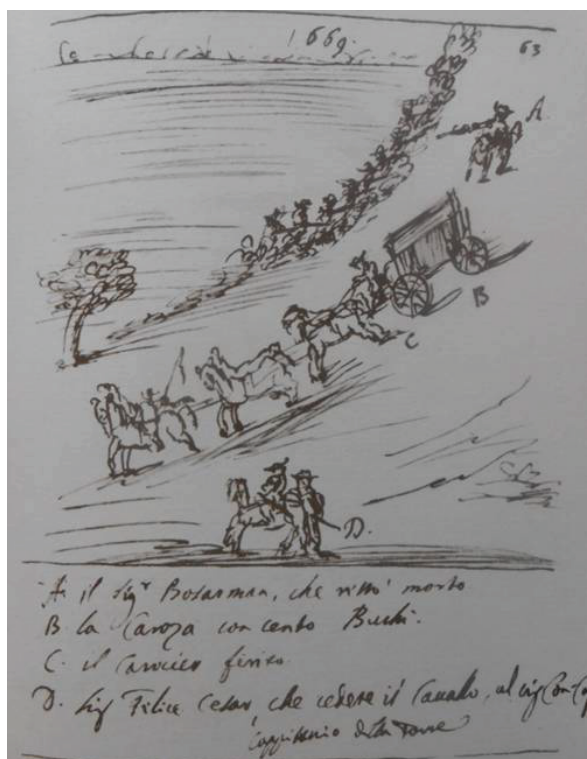 1669.
63
A
B
C
D.
A. il Sigr Bosarman, che restò morto
B. la Caroza con cento Buchi.
C. il Carocier ferito.
D. Sigr Felice Cesar che cedere il Cavallo, al sig Con
Cappittanio della Torre